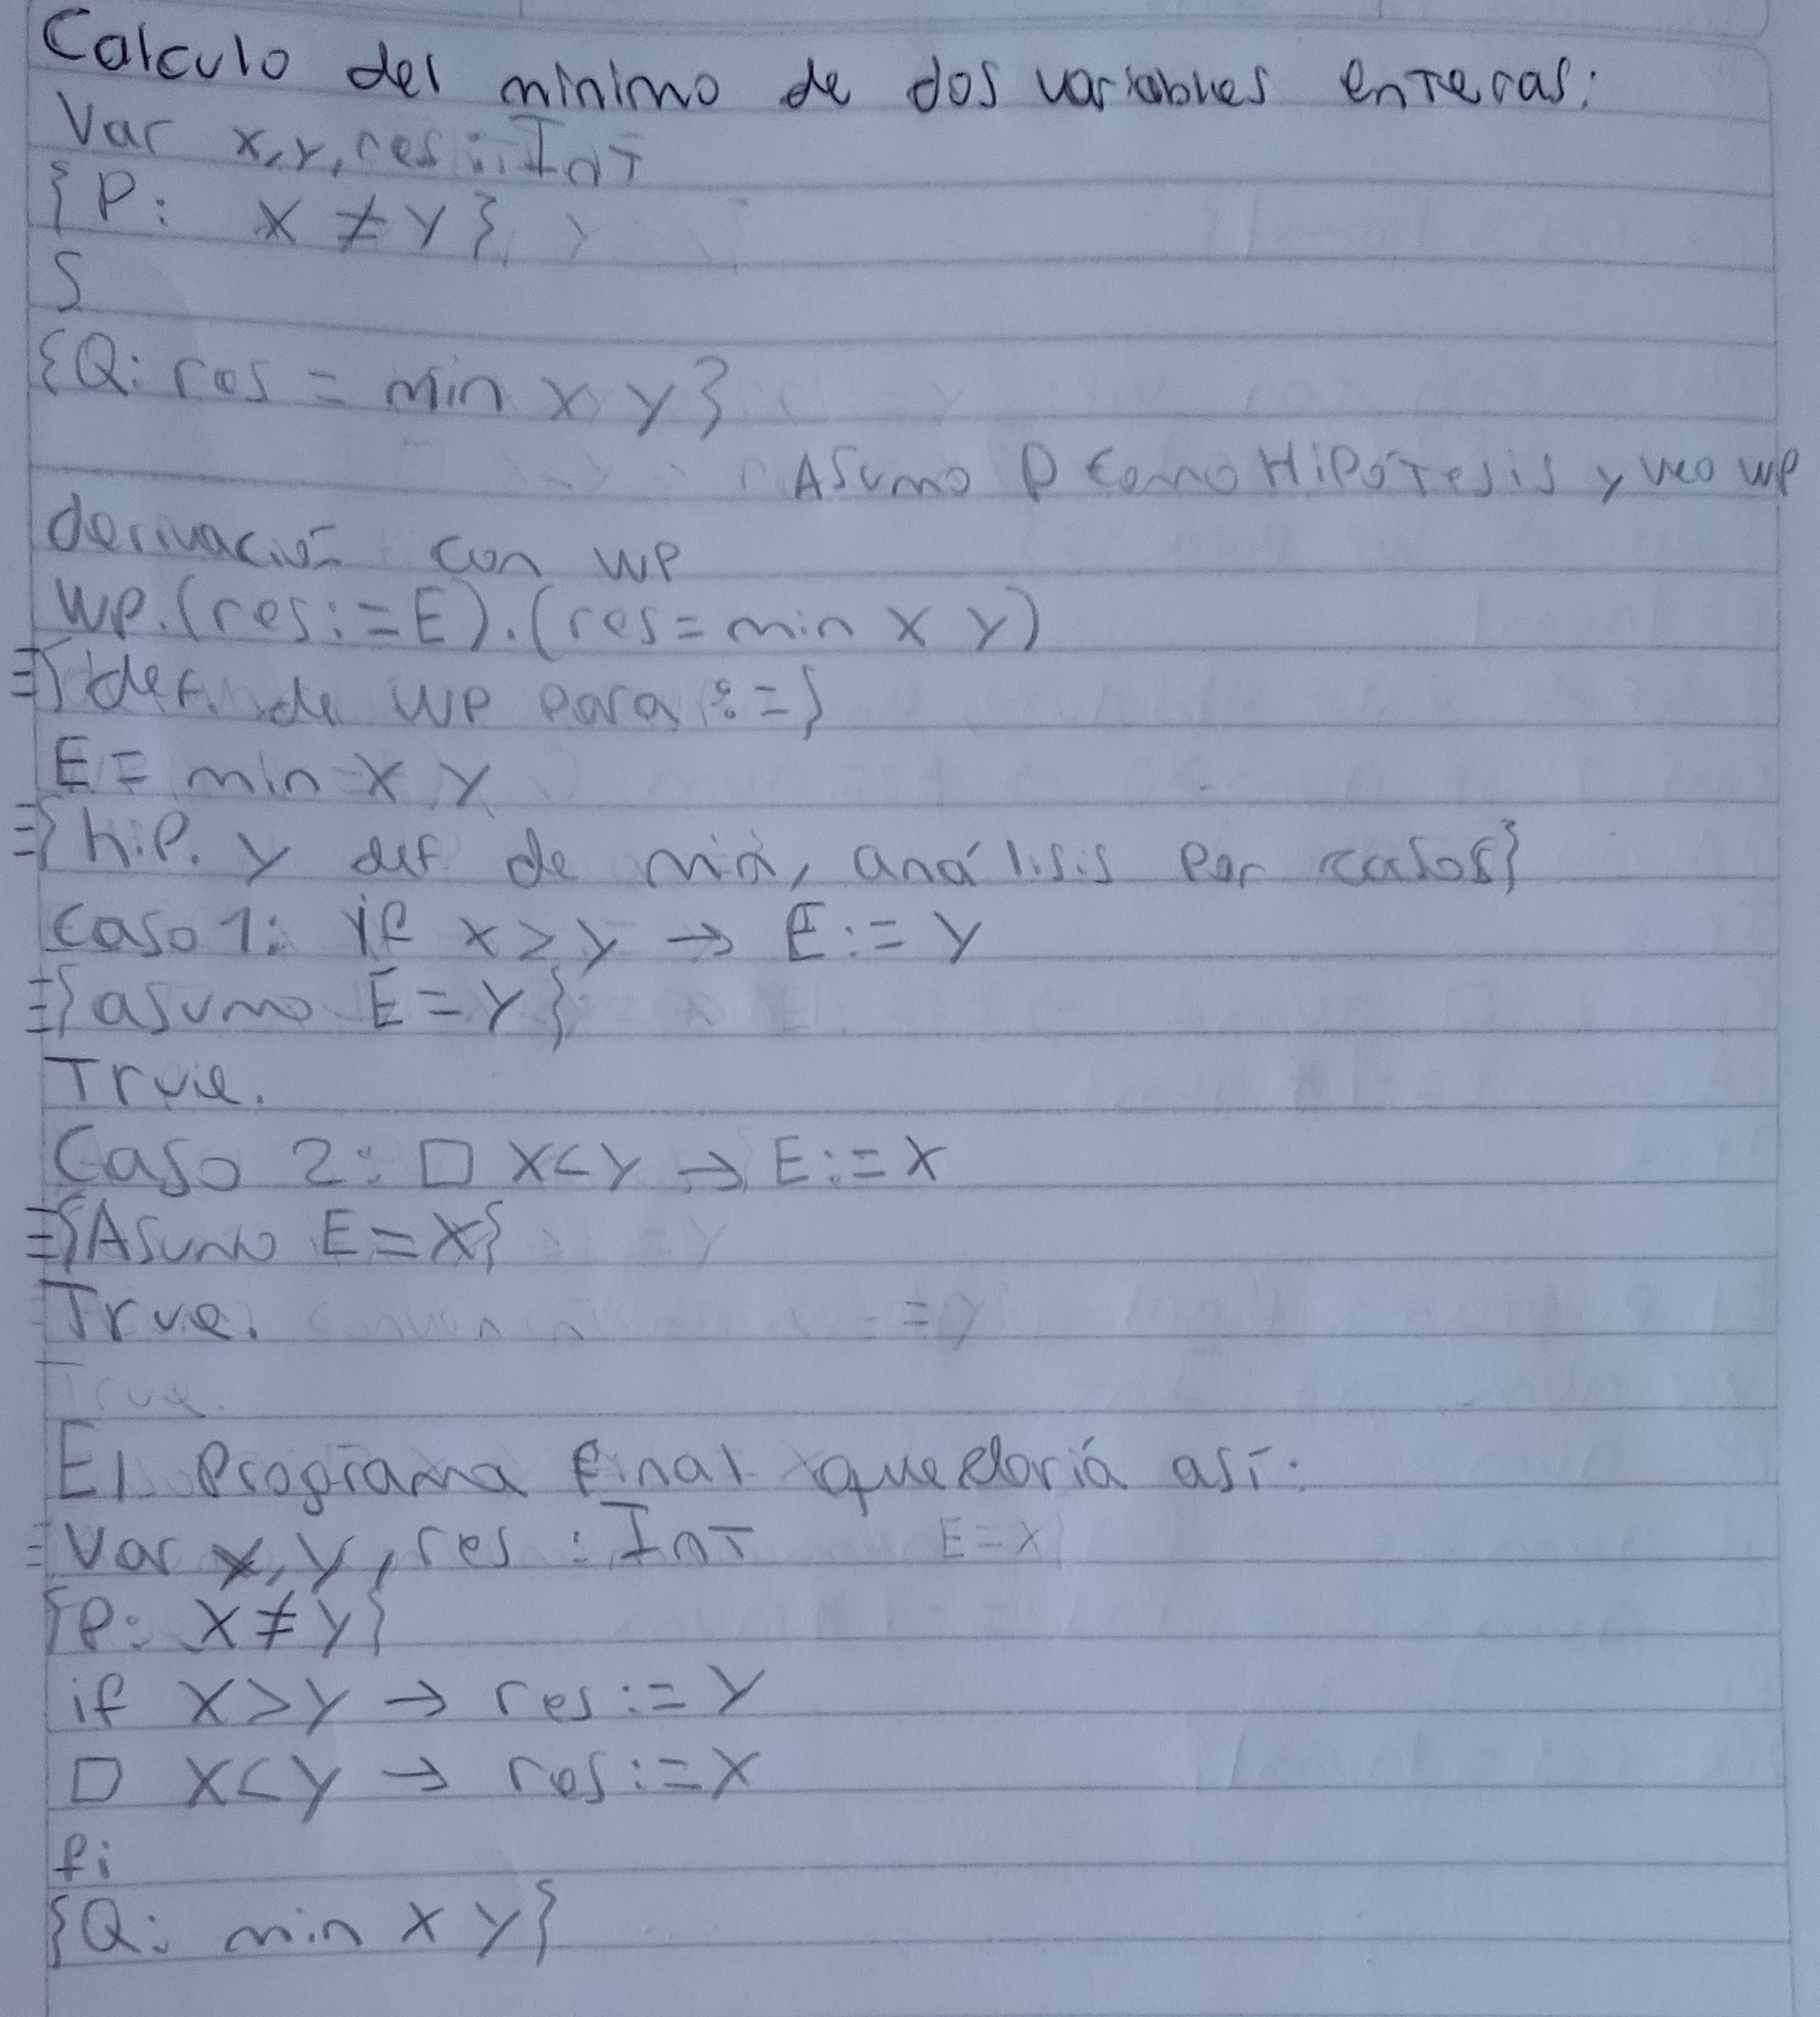 Calculo del minimo de dos variables enteras:
Var x,y,res : Int
{P: x ≠ y}
S
{Q: res = min x y}
Asumo P como Hipótesis y veo wp
derivación con wp
wp.(res:=E).(res=min x y)
≡{def. de wp para :=}
E = min x y
≡{hip. y def. de min, análisis por casos}
Caso 1: if x > y → E:= y
≡{asumo E = y}
True.
Caso 2: □ x<y → E:=x
≡{Asumo E = x}
True.
True.
El Programa final quedaría así:
Var x, y, res : Int
E=x}
{P: x ≠ y}
if x>y → res:=y
□ x<y → res:=x
fi
{Q: min x y}